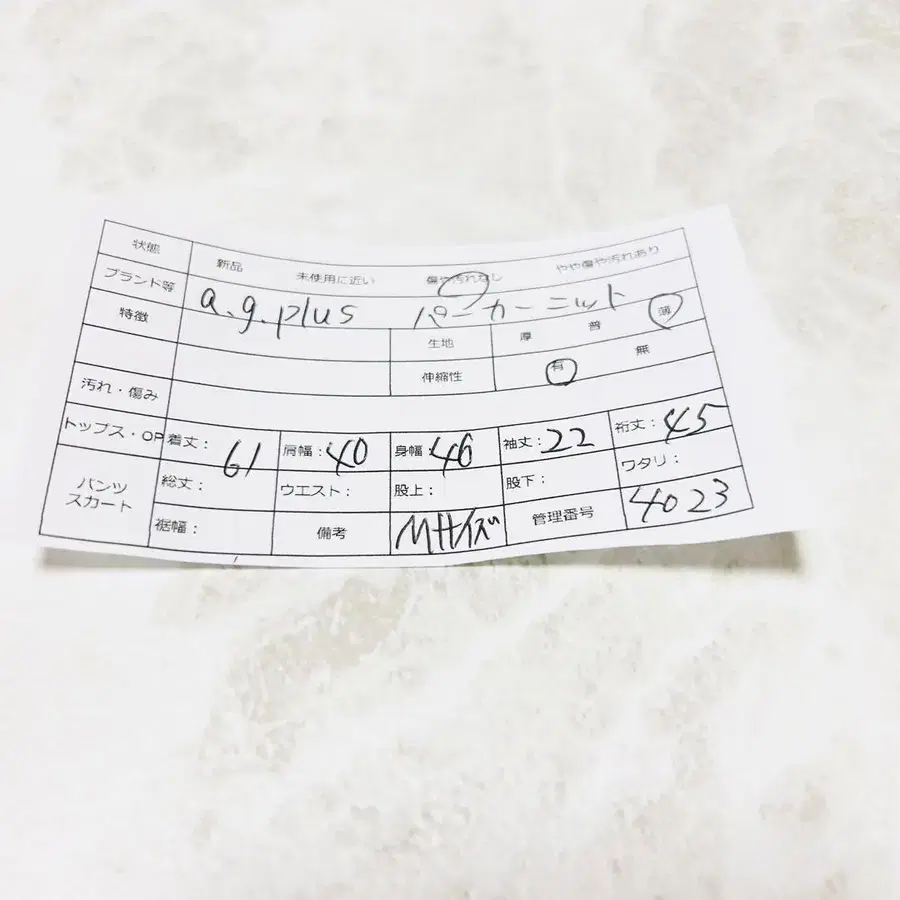 状態 新品 未使用に近い 傷や汚れなし やや傷や汚れあり
ブランド等 a.g.plus パーカーニット
特徴 生地 厚 普 薄
伸縮性 有 無
汚れ・傷み
トップス・OP 着丈: 61 肩幅: 40 身幅: 46 袖丈: 22 裄丈: 45
パンツ スカート 総丈: ウエスト: 股上: 股下: ワタリ:
裾幅: 備考 Mサイズ 管理番号 4023